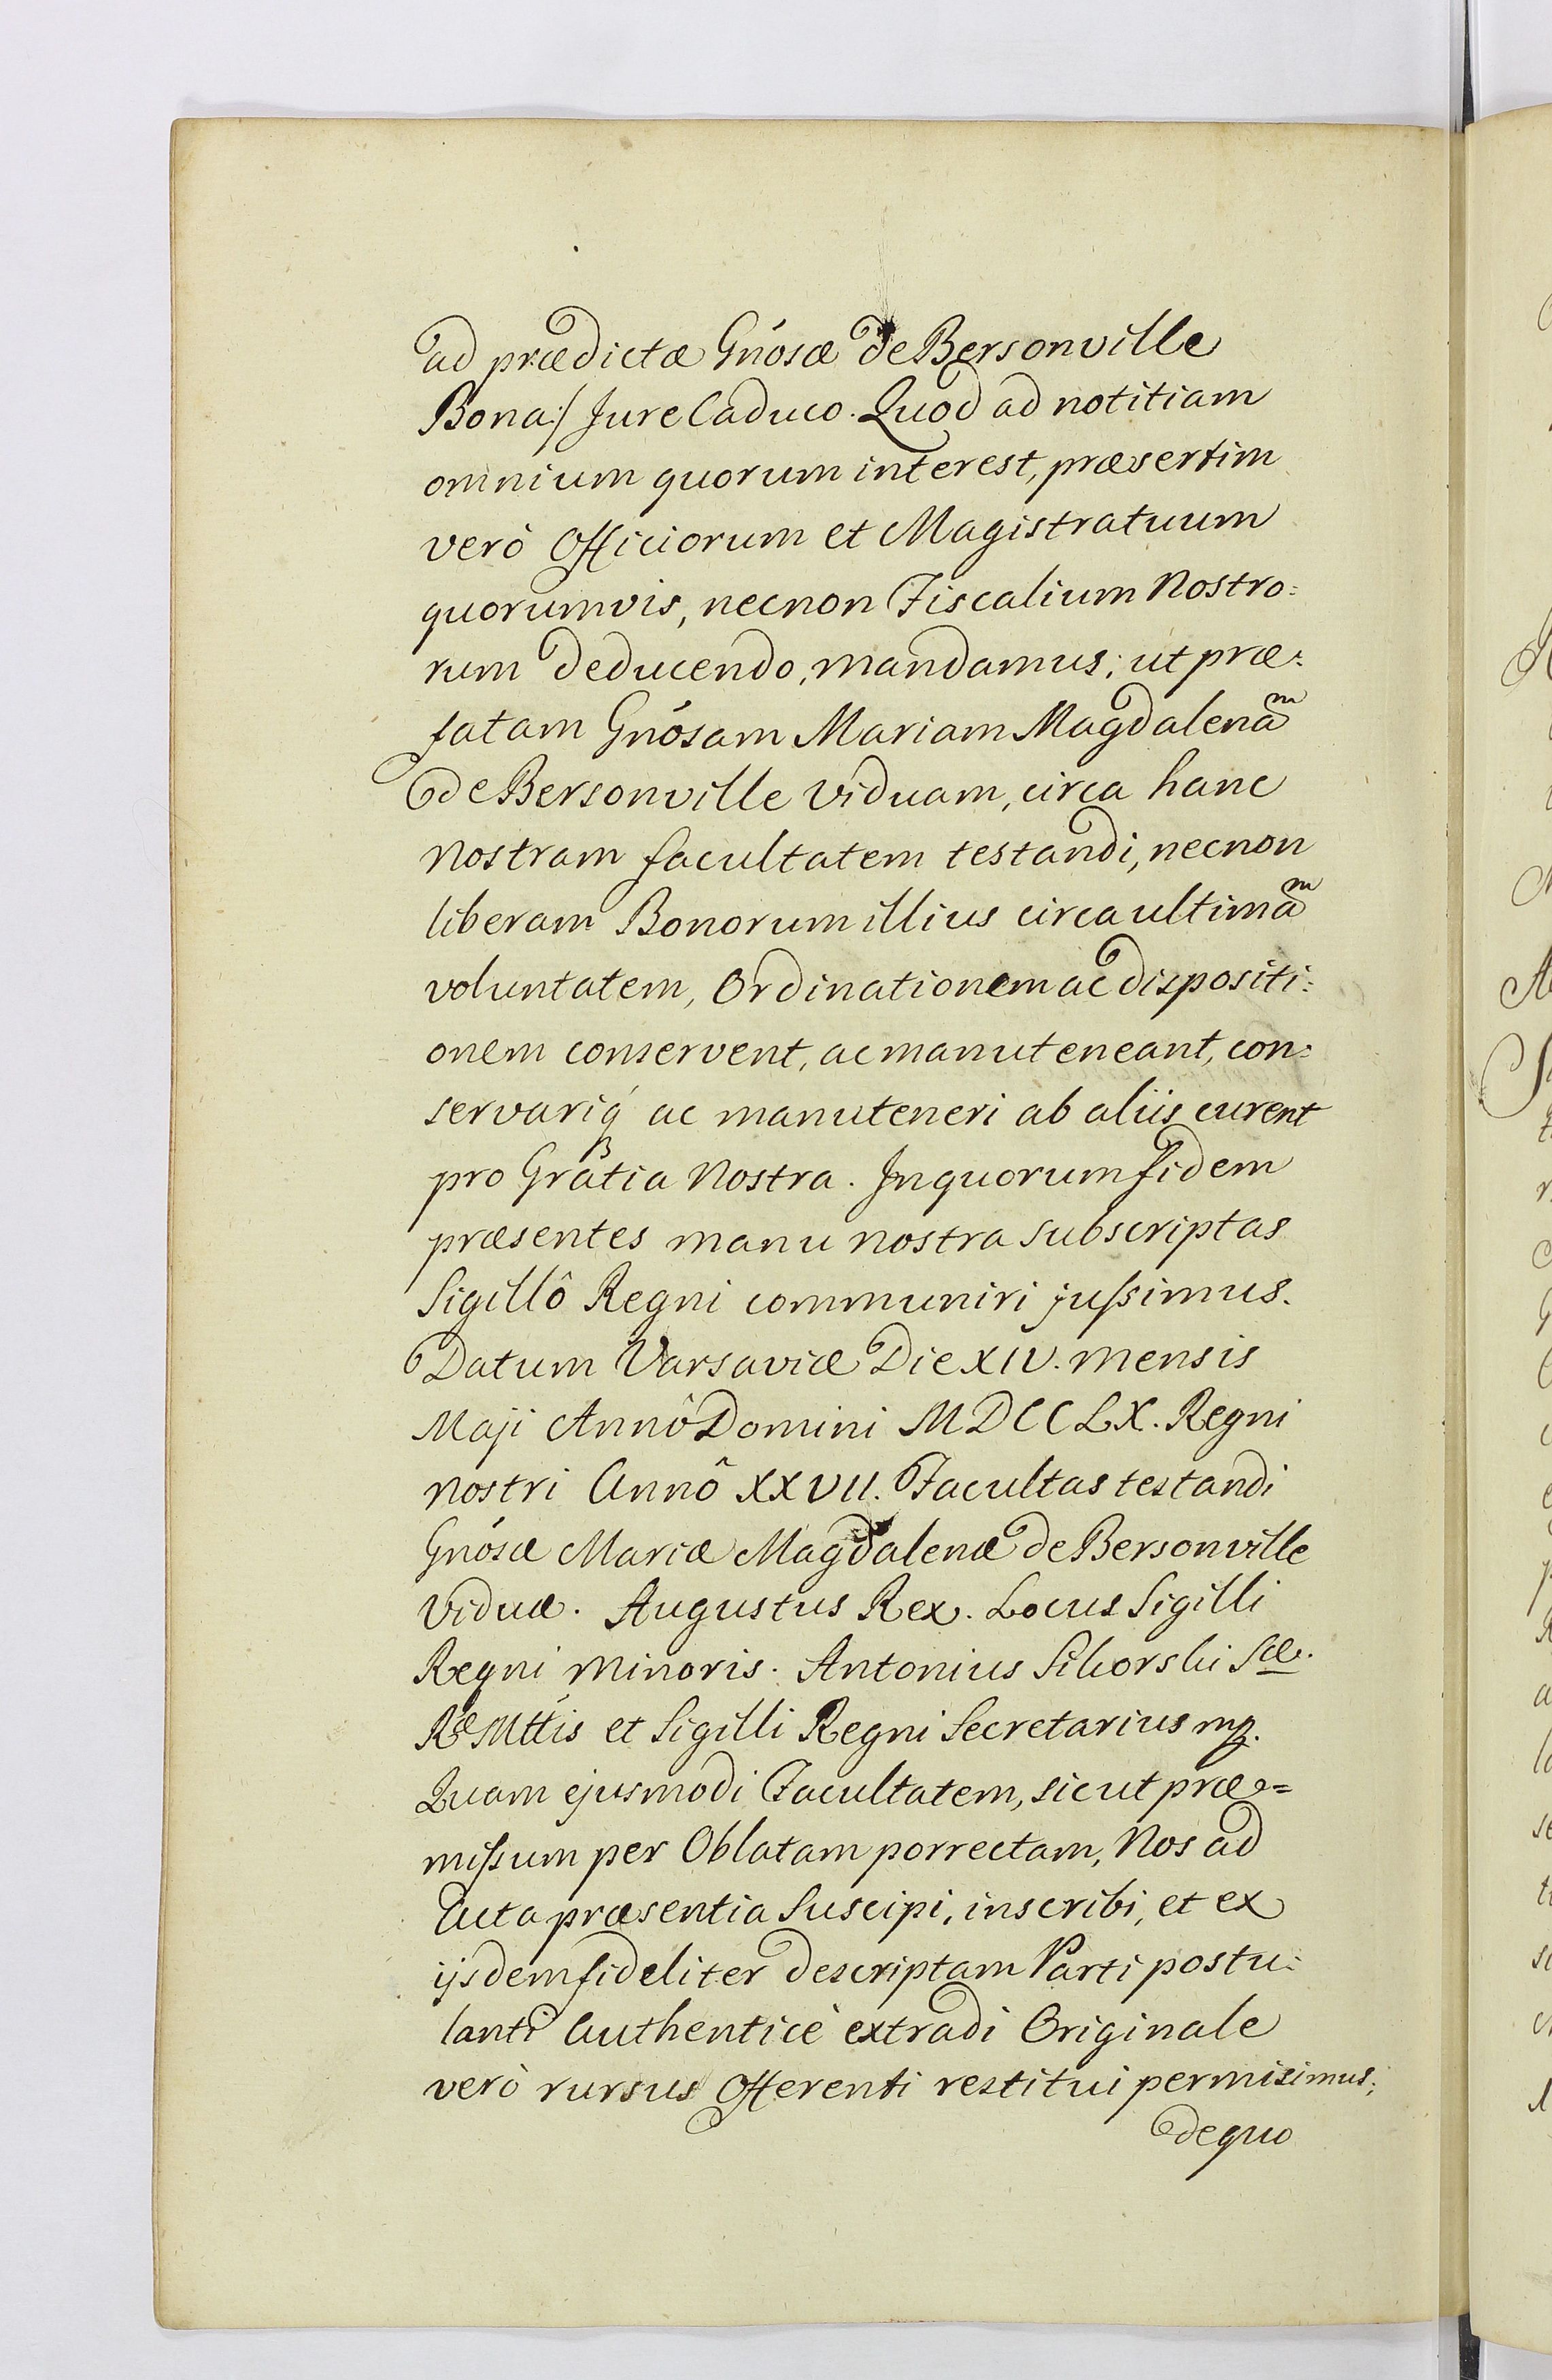 ad prædictæ Gnósæ de Bersonville
Bona:/ Jure Caduco. Quod ad notitiam
omnium quorum interest, præsertim
verò Officiorum et Magistratuum
quorumvis, necnon Fiscalium Nostro:
rum deducendo, mandamus; ut præ:
fatam Gnósam Mariam Magdalenaᵐ
de Bersonville Viduam, circa hanc
Nostram facultatem testandi, necnon
liberam Bonorum illius circa ultimaᵐ
voluntatem, Ordinationem ac dispositi:
onem conservent, ac manuteneant, con:
servariq́ ac manuteneri ab aliis curent
pro Gratia Nostra. In quorum fidem
præsentes manu nostra subscriptas
Sigillô Regni communiri jußimus.
Datum Varsaviæ Die XIV. mensis
Maji Annô Domini MDCCLX. Regni
nostri Annô XXVII. Facultas testandi
Gnósæ Mariæ Magdalenæ de Bersonville
Viduæ. Augustus Rex. Locus Sigilli
Regni Minoris. Antonius Sikorski Sæ.
Ræ Mttis et Sigilli Regni Secretarius mp.
Quam ejusmodi Facultatem, sicut præ=
mißum per Oblatam porrectam, Nos ad
Acta præsentia Suscipi, inscribi, et ex
ijsdem fideliter descriptam Parti postu:
lanti Authenticè extradi Originale
verò rursus Offerenti restitui permisimus;
de quo